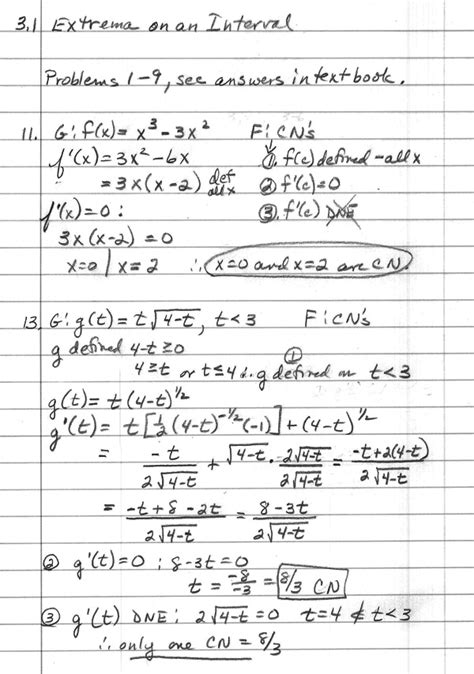 3.1 Extrema on an Interval
Problems 1-9, see answers in textbook.
11. G: f(x) = x³ - 3x² F: CN's
f'(x) = 3x² - 6x ①. f(c) defined - all x
= 3x(x-2) def all x ② f'(c) = 0
f'(x) = 0 : ③. f'(c) DNE
3x(x-2) = 0
x=0 | x=2 ∴ x=0 and x=2 are CN
13. G: g(t) = t√(4-t), t<3 F: CN's
g defined 4-t ≥ 0 ①
4 ≥ t or t ≤ 4 ∴ g defined on t<3
g(t) = t(4-t)^(1/2)
g'(t) = t[½(4-t)^(-1/2)(-1)] + (4-t)^(1/2)
= -t/(2√(4-t)) + √(4-t) · 2√(4-t)/(2√(4-t)) = (-t+2(4-t))/(2√(4-t))
= (-t+8-2t)/(2√(4-t)) = (8-3t)/(2√(4-t))
② g'(t) = 0 ; 8-3t = 0
t = -8/-3 = 8/3 CN
③ g'(t) DNE ; 2√(4-t) = 0 t=4 ∉ t<3
∴ only one CN = 8/3